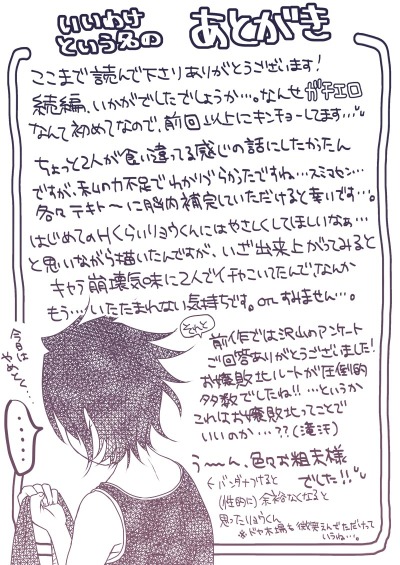 いいわけ
という名の
あとがき
ここまで読んで下さりありがとうございます!
続編、いかがでしたでしょうか…。なんせガチエロ
なんて初めてなので、前回以上にキンチョーしてます…
ちょっと2人が食い違ってる感じの話にしたかったん
ですが、私の力不足でわかりづらかったですね…スミマセン…
各々テキトーに脳内補完していただけると幸いです…。
はじめてのHくらいリョウくんにはやさしくしてほしいなぁ…
と思いながら描いたんですが、いざ出来上がってみると
キャラ崩壊気味に2人でイチャこいてたんで、なんか
もう…いたたまれない気持ちです。orz すみません…。
それと
前作では沢山のアンケート
ご回答ありがとうございました!
お嬢敗北ルートが圧倒的
多数でしたね!!…というか
これはお嬢敗北ってことで
いいのか…??(滝汗)
うーん、色々お粗末様
でした!!
今日は
やめとく…
……
←バンダナつけると
(性的に)余裕なくなると
思ったリョウくん